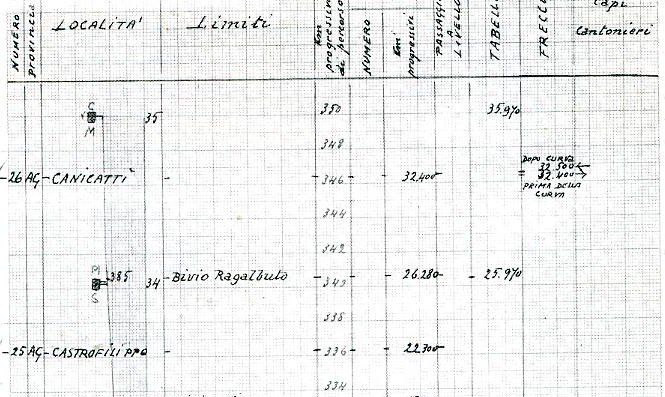 NUMERO
PROVINCIA
LOCALITA'
Limiti
Km progressivi di percorso
NUMERO
Km' progressivi
PASSAGGI A LIVELLO
TABELL
FRECCI
Capi
Cantonieri
C
M
35
350
35.970
348
-26 AG-CANICATTI'
-
- 346
- 32.400
DOPO CURVA
32.500
= 32.400
PRIMA DELLA
CURVA
344
342
M
S
385
34
-Bivio Ragalbuto
- 340
- 26.280
- 25.970
338
-25 AG-CASTROFILIPPO
-
- 336
- 22.300
334